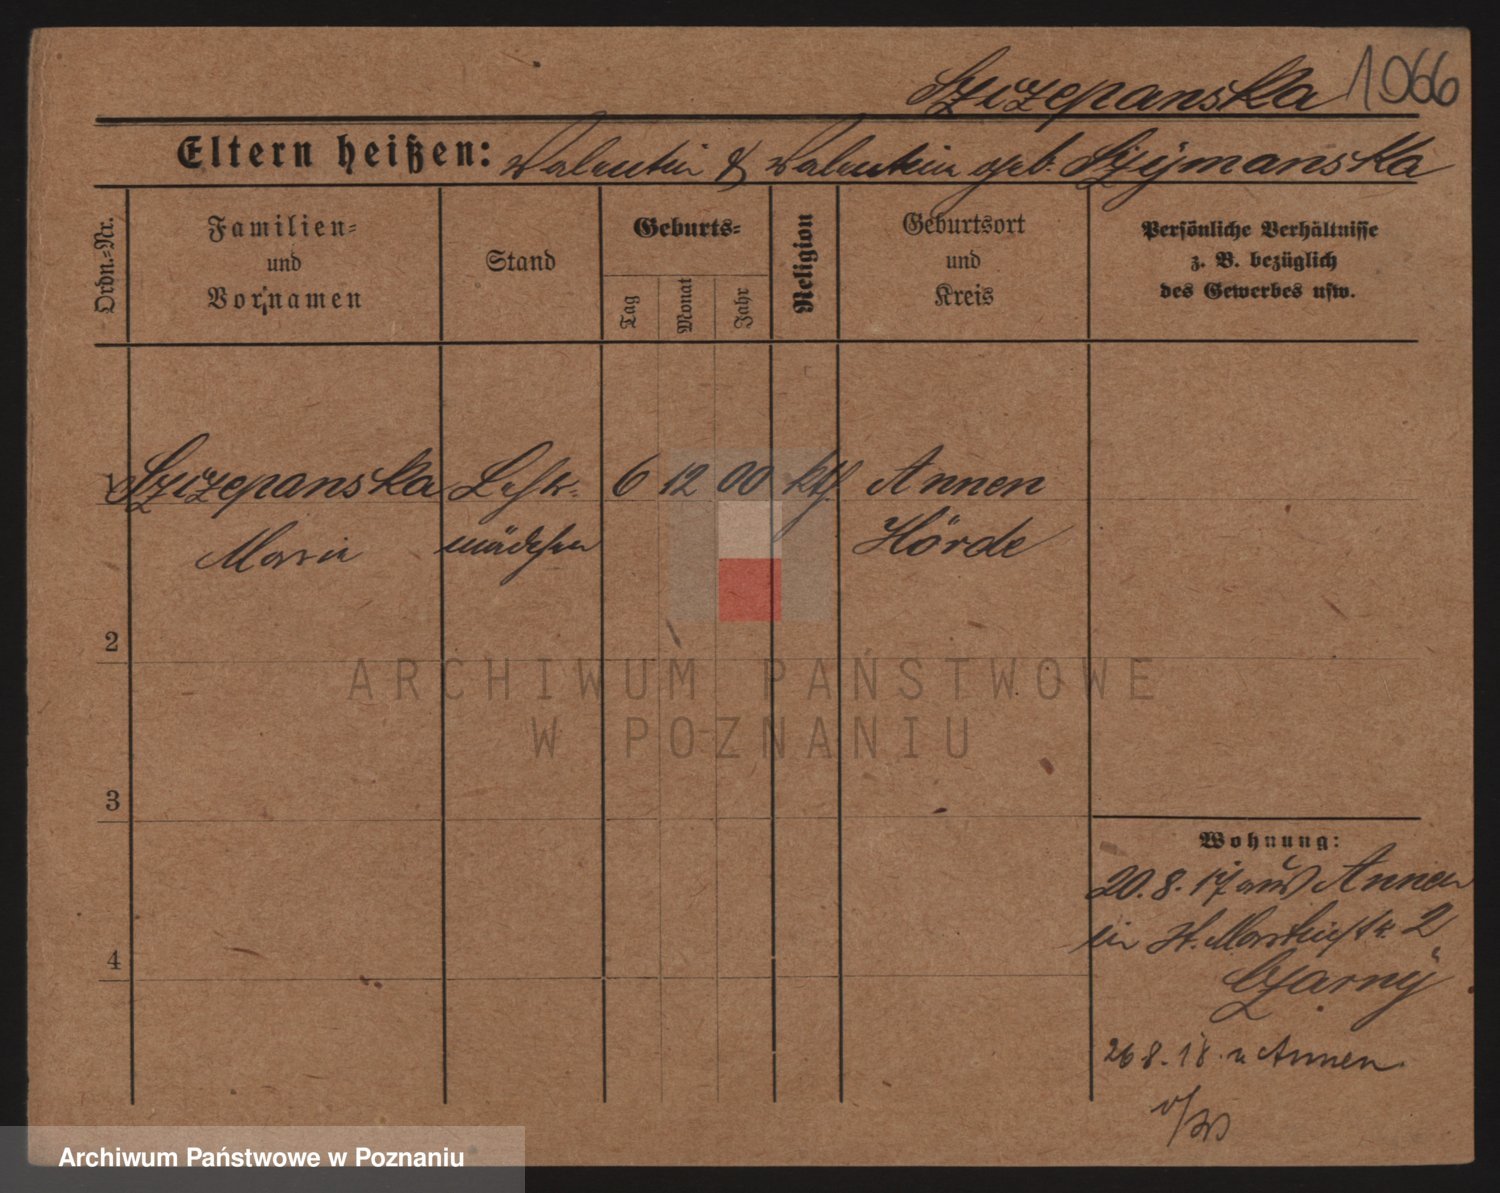 Szczepanska 1066
Eltern heißen: Valentin & Valentine geb. Szÿmanska
Ordn.-Nr.
Familien-
und
Vornamen
Stand
Geburts-
Tag
Monat
Jahr
Religion
Geburtsort
und
Kreis
Persönliche Verhältnisse
z. B. bezüglich
des Gewerbes usw.
1 Szczepanska Lehr- 6 12 00 kth. Annen
Maria mädchen Hörde
2
3
4
Wohnung:
20.8.17 aus Annen
in St. Martinstr. 2
Czarnÿ
26 8.18. n Annen.
ARCHIWUM PAŃSTWOWE
W POZNANIU
Archiwum Państwowe w Poznaniu